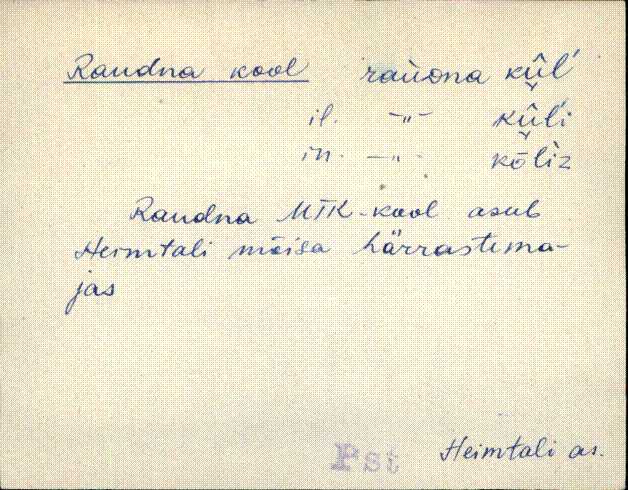 Raudna kool raùdna kǖl'
il. -"- kǖl'i
in. -"- kōl̀iz
Raudna MTK-kool asub
Heimtali mõisa härrastema-
jas
Pst Heimtali as.